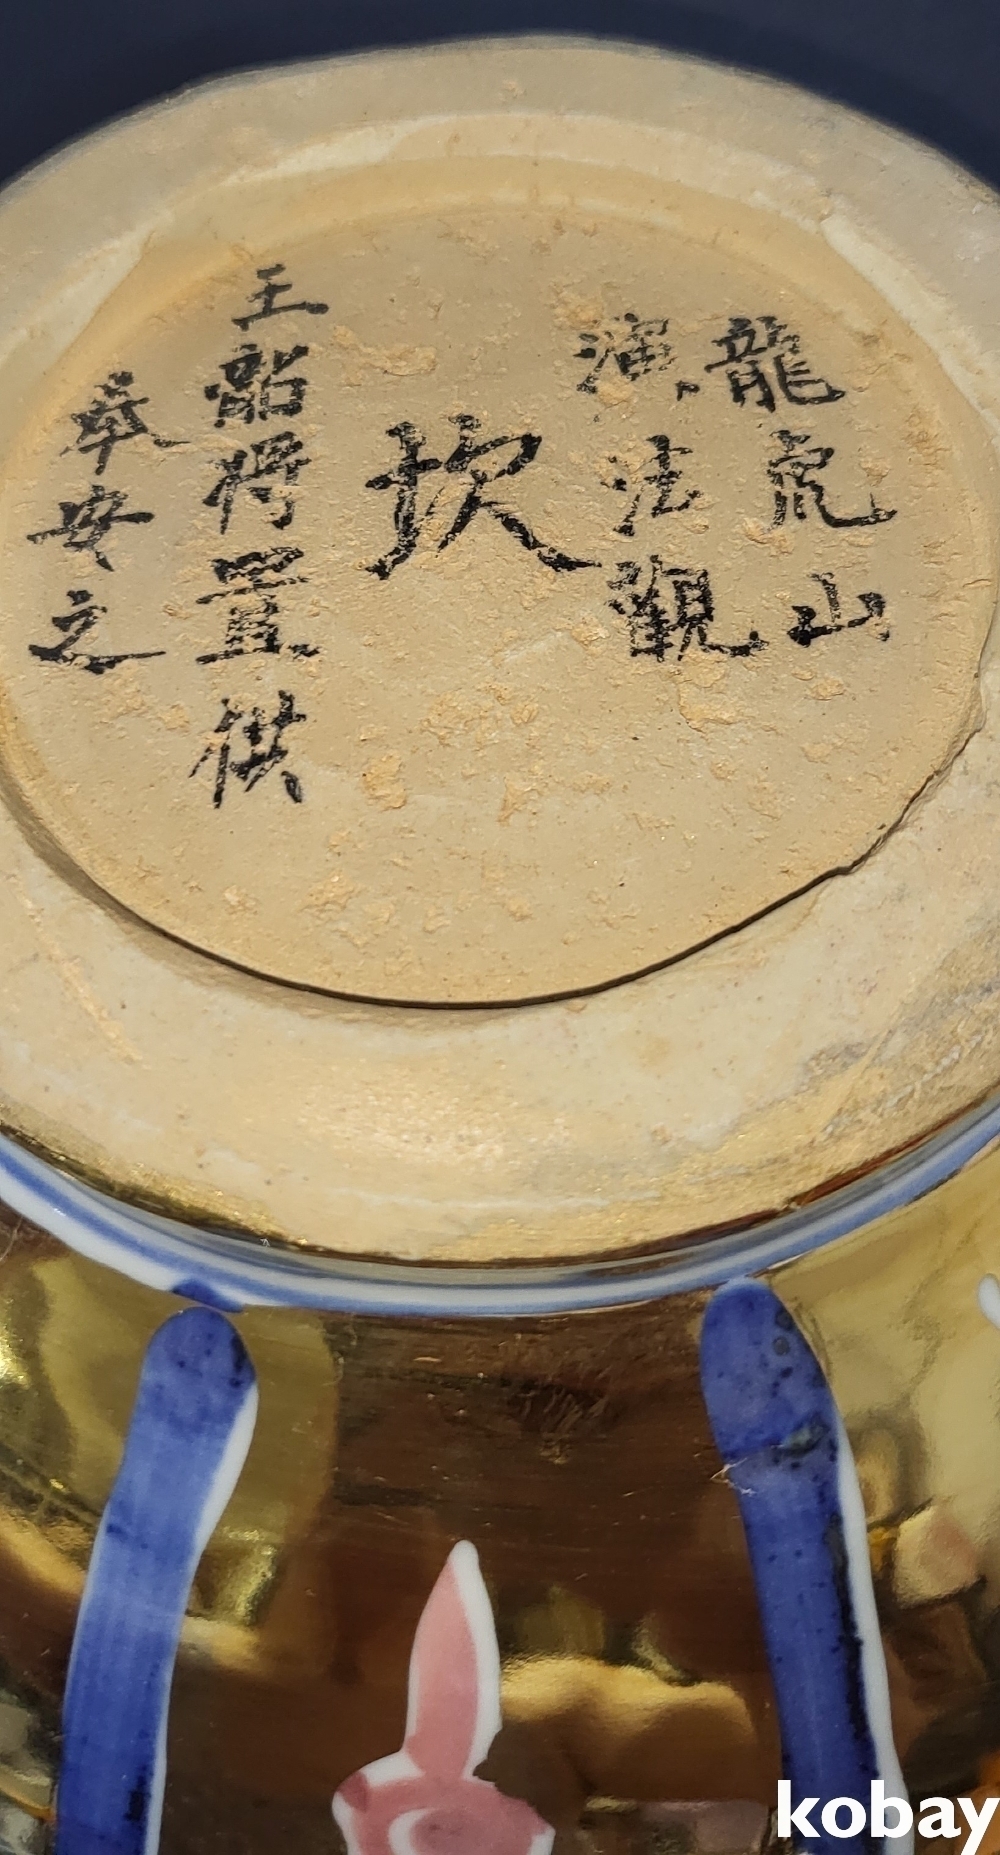 龍虎山
演法觀
坎
王韶將置供
奉安之
kobay